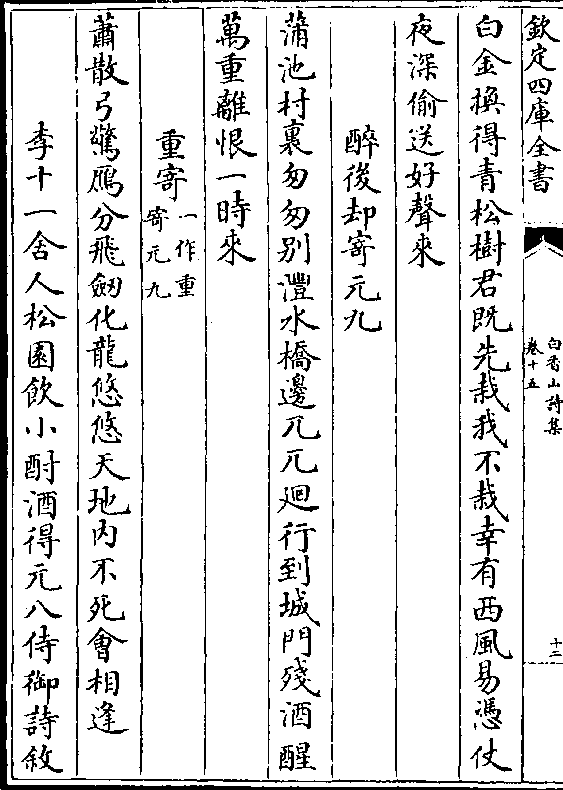 欽定四庫全書
白香山詩集
卷十五
十二
白金換得青松樹君既先栽我不栽幸有西風易憑仗
夜深偷送好聲來
醉後却寄元九
蒲池村裏匆匆別灃水橋邊兀兀迴行到城門殘酒醒
萬重離恨一時來
重寄一作重寄元九
蕭散弓驚鴈分飛劒化龍悠悠天地內不死會相逢
李十一舍人松園飲小酎酒得元八侍御詩敘